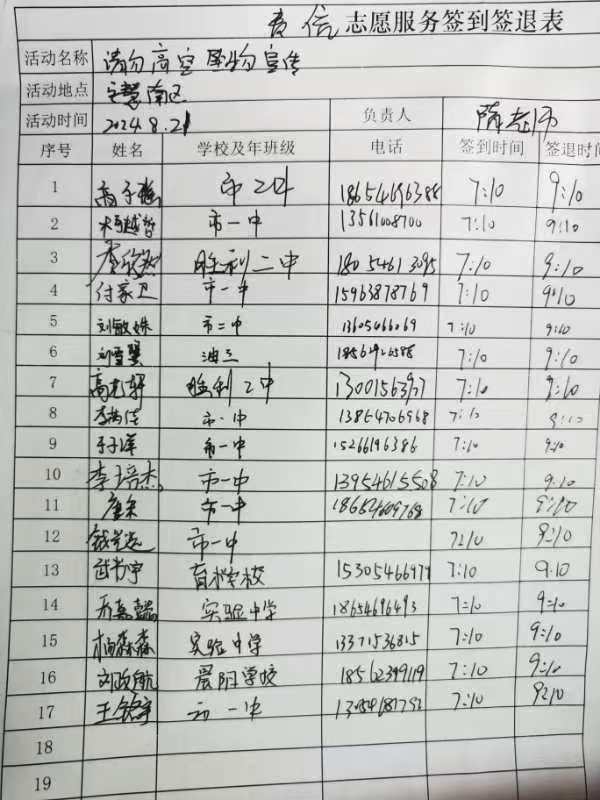 志愿服务签到签退表
活动名称 请勿高空坠物宣传
活动地点 南区
活动时间 2024.8.21 负责人 陈老师
序号 姓名 学校及年班级 电话 签到时间 签退时间
1 高子 市二中 18654696388 7:10 9:10
2 市一中 13561008700 7:10 9:10
3 李欣 胜利二中 18054613095 7:10 9:10
4 付家卫 市一中 15963878769 7:10 9:10
5 刘敏姝 市二中 13605466069 7:10 9:10
6 刘雪翼 油三 7:10 9:10
7 高艺轩 胜利二中 7:10 9:10
8 市一中 13854706968 7:10 9:10
9 于子洋 市一中 15266196386 7:10 9:10
10 李培杰 市一中 13954615508 7:10 9:10
11 市一中 7:10 9:10
12 市一中 7:10 9:10
13 武书宇 育才学校 7:10 9:10
14 实验中学 18654696493 7:10 9:10
15 杨森森 实验中学 13371536815 7:10 9:10
16 刘政航 晨阳学校 18562399119 7:10 9:10
17 王 市一中 7:10 9:10
18
19